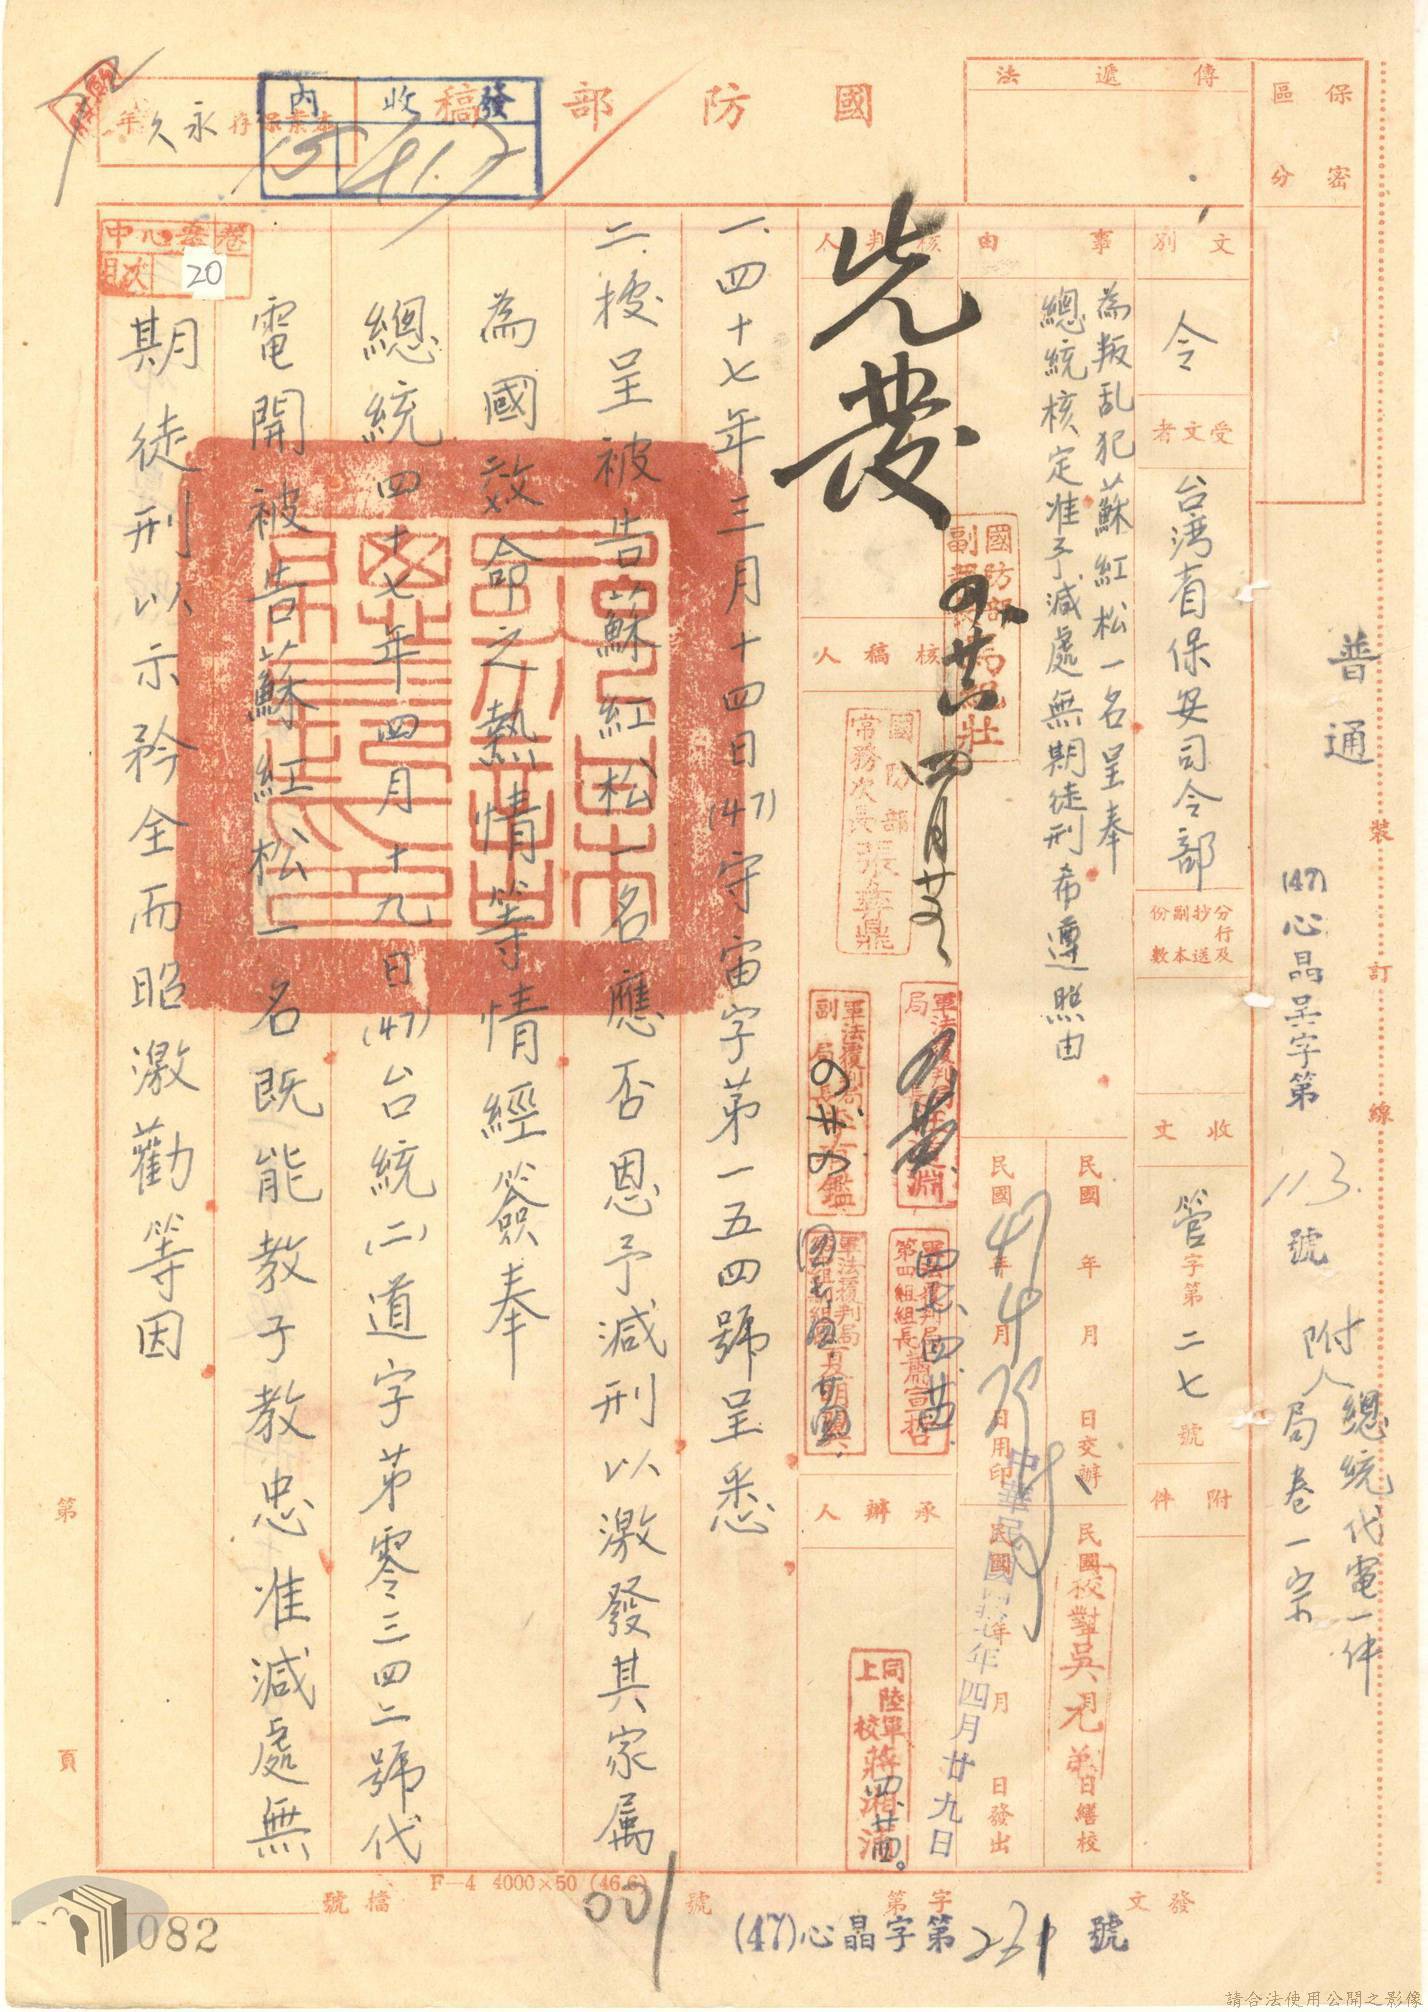 保密區分
傳遞法
國防部稿
發收內
本案保存永久年
中心卷
目次
20
普通
(47)心晶字第113號
附總統代電一件
人局卷一宗
裝訂線
文別
令
受文者
台湾省保安司令部
分行及抄送副本份數
收文
管字第二七號
附件
事由
為叛乱犯蘇紅松一名呈奉
總統核定准予減處無期徒刑希遵照由
民國年月日交辦
民國年月日繕校
校對吳元弟
民國47年4月日用印
民國年月日發出
中華民國四拾七年四月廿九日
核判人
先發
國防部副部長馬紀壯
核稿人
國防部常務次長張彝鼎
四月廿
軍法覆判局局長汪道淵
軍法覆判局副局長李有鑑
軍法覆判局第四組組長蕭宣哲
四七.四.廿
承辦人
同陸軍上校蔣湘浦
一、四十七年三月十四日(47)守宙字第一五四號呈悉
二、據呈被告蘇紅松一名應否恩予減刑以激發其家属
為國效命之熱情等情經簽奉
總統四十七年四月十九日(47)台統(二)道字第零三四二號代
電開被告蘇紅松一名既能教子教忠准減處無
期徒刑以示矜全而昭激勸等因
第頁
F—4 4000×50 (46.6)
發文字第號
(47)心晶字第231號
檔號
001
082
請合法使用公開之影像